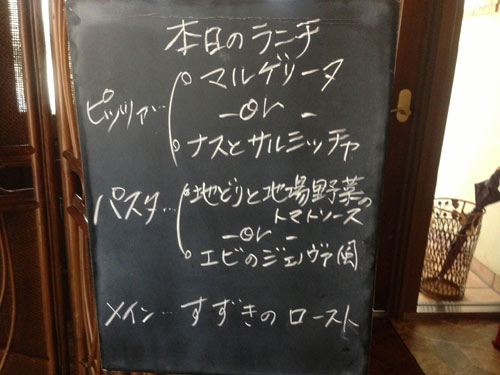 本日のランチ
ピッツァ… マルゲリータ
-or-
ナスとサルシッチャ
パスタ… 地どりと地場野菜の
トマトソース
-or-
エビのジェノヴァ風
メイン… すずきのロースト